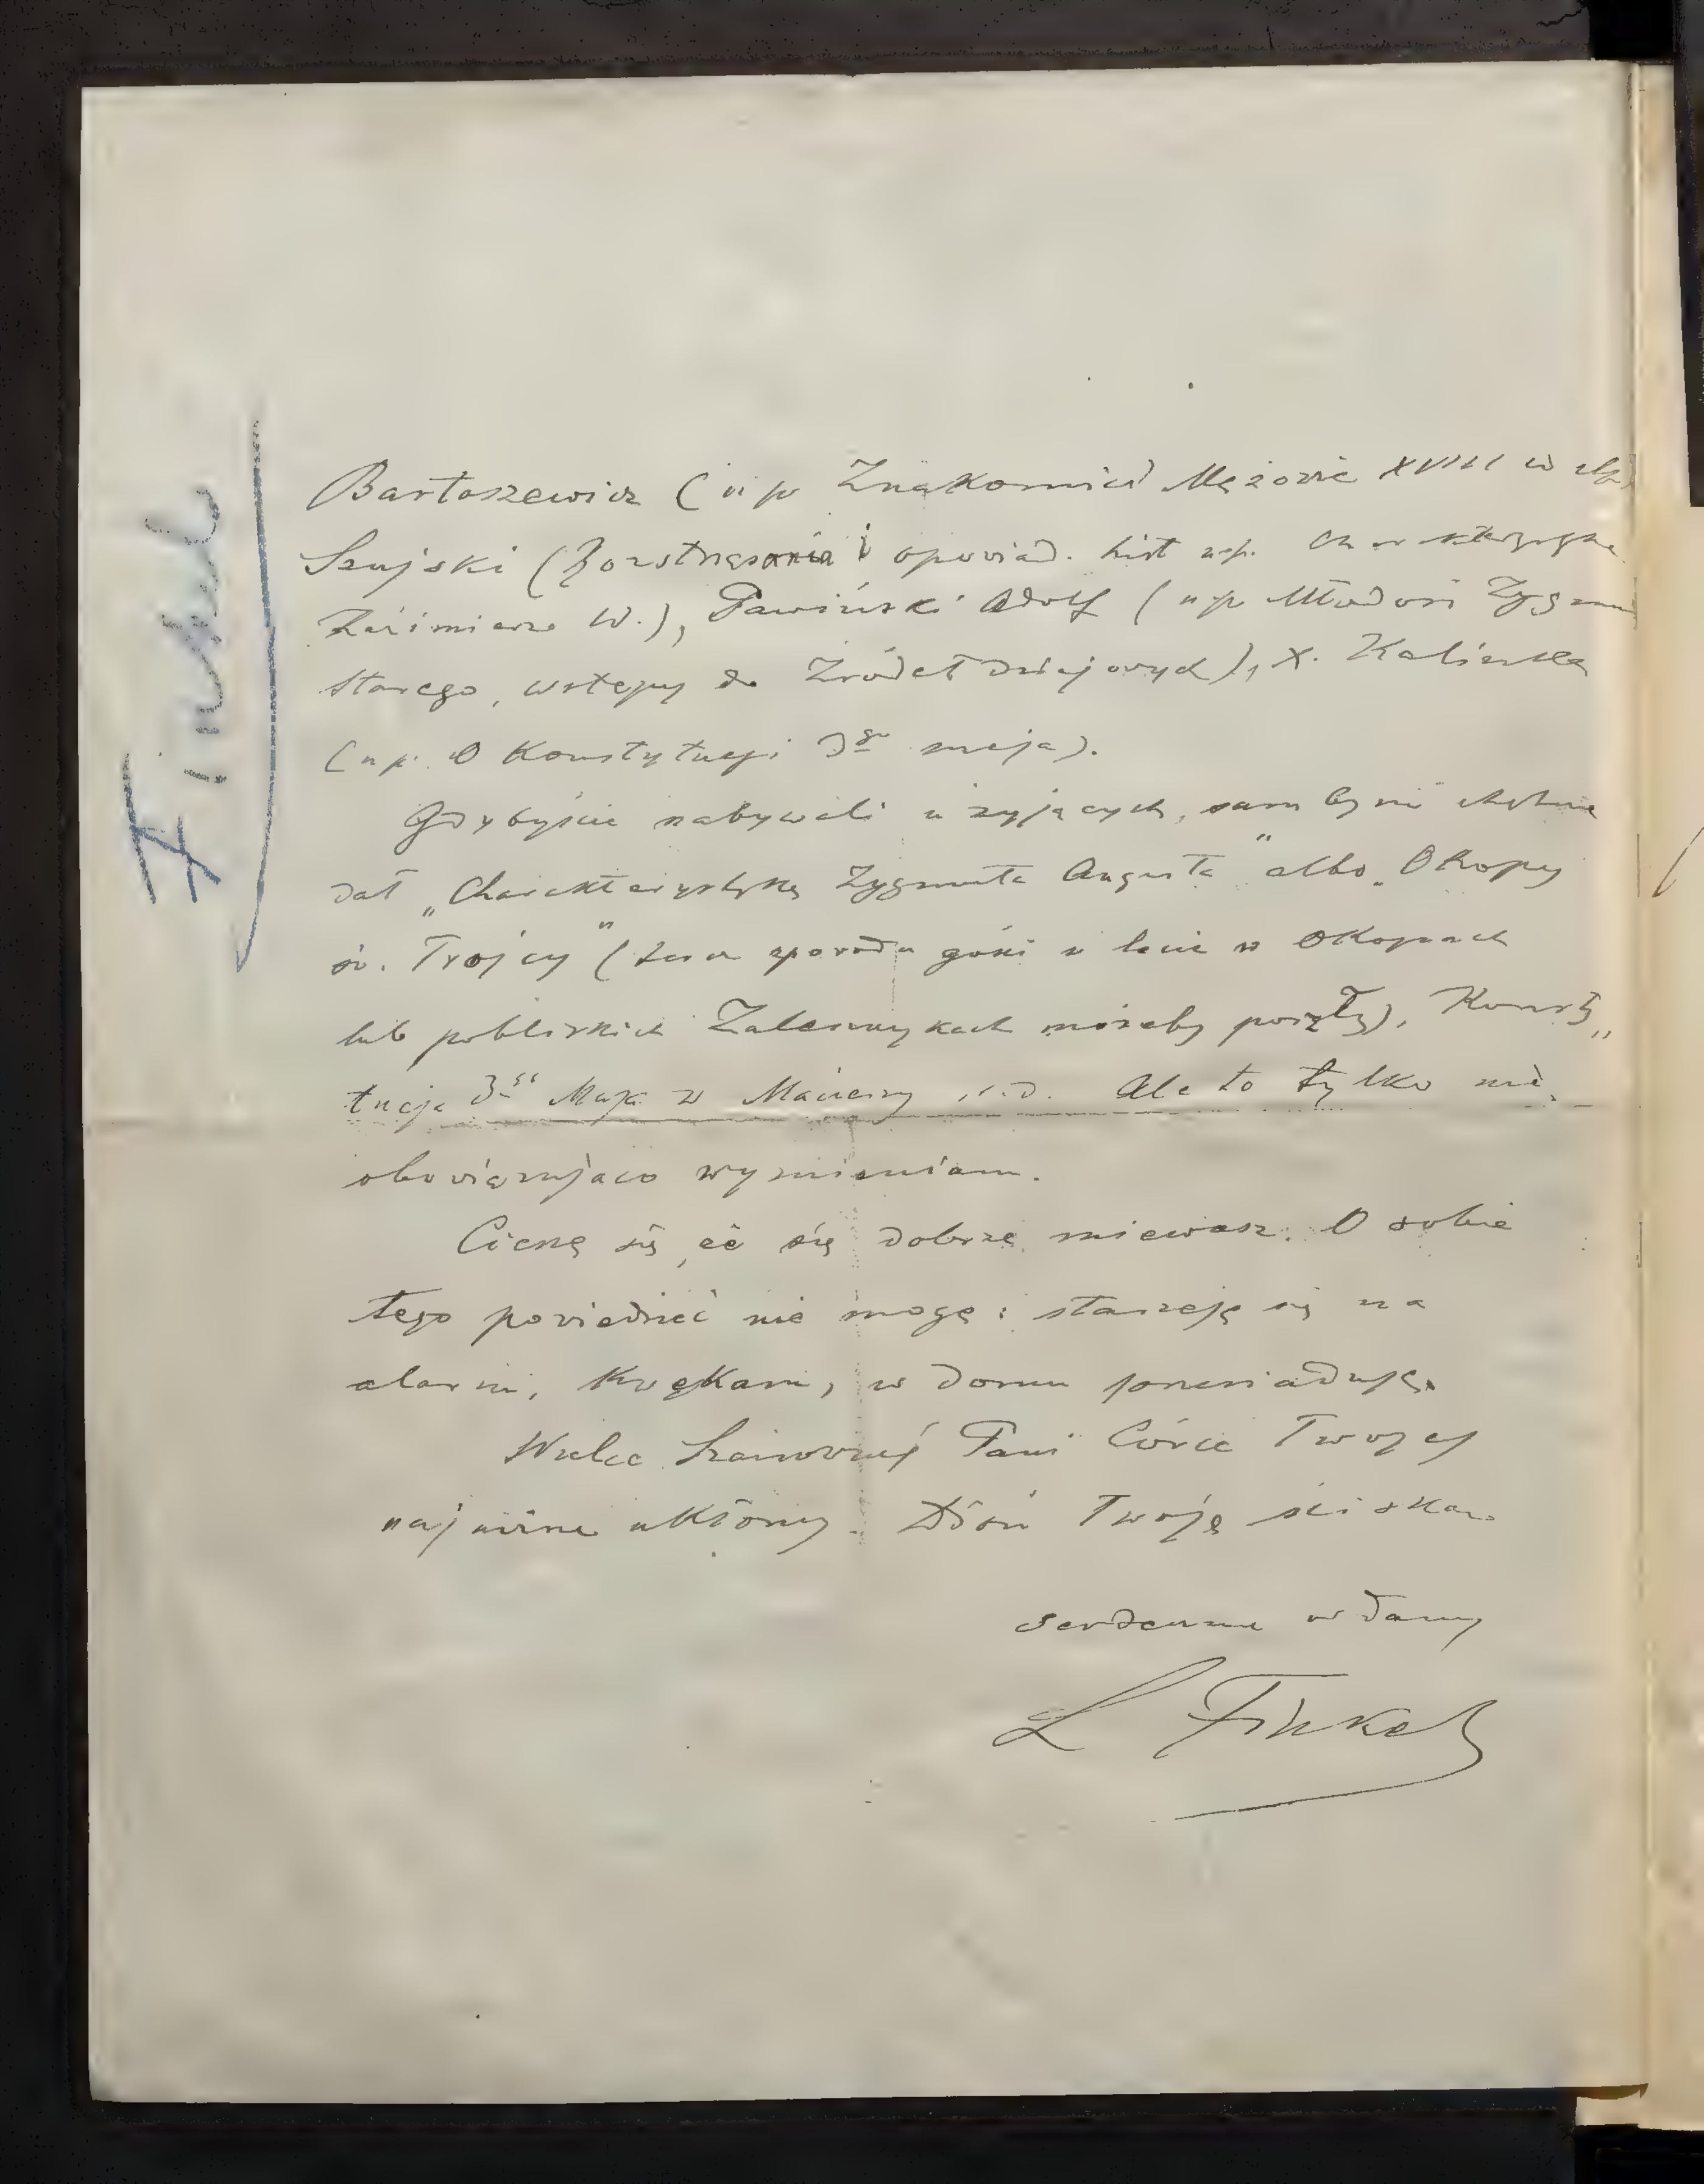 Finkel
Bartoszewicz (np Znakomici Mężowie XVIII w
Szujski (Roztrząsania i opowiad. hist np. Charakterystyka
Kazimierza W.), Pawiński Adolf (np Młodość Zygmu
Starego, wstępy do Źródeł dziejowych), X. Kalinka
(np. O Konstytucyi 3go maja).
Gdybyście nabywali u żyjących, sam bym chętnie
dał „Charakterystykę Zygmunta Augusta" albo „Okopy
św. Trójcy" (teraz z powodu gości w lecie w Okopach
lub pobliskich Zaleszczykach możeby poszły), Konsty„
tucja 3go Maja w Macierzy i.t.d. Ale to tylko nie„
obowiązująco wymieniam.
Cieszę się, że się dobrze miewasz. O sobie
tego powiedzieć nie mogę: starzeję się na
alarm, kwękam, w domu przesiaduję.
Wielce Szanownej Pani Córce Twojej
najniższe ukłony. Dłoń Twoję ściskam
serdecznie oddany
L Finkel